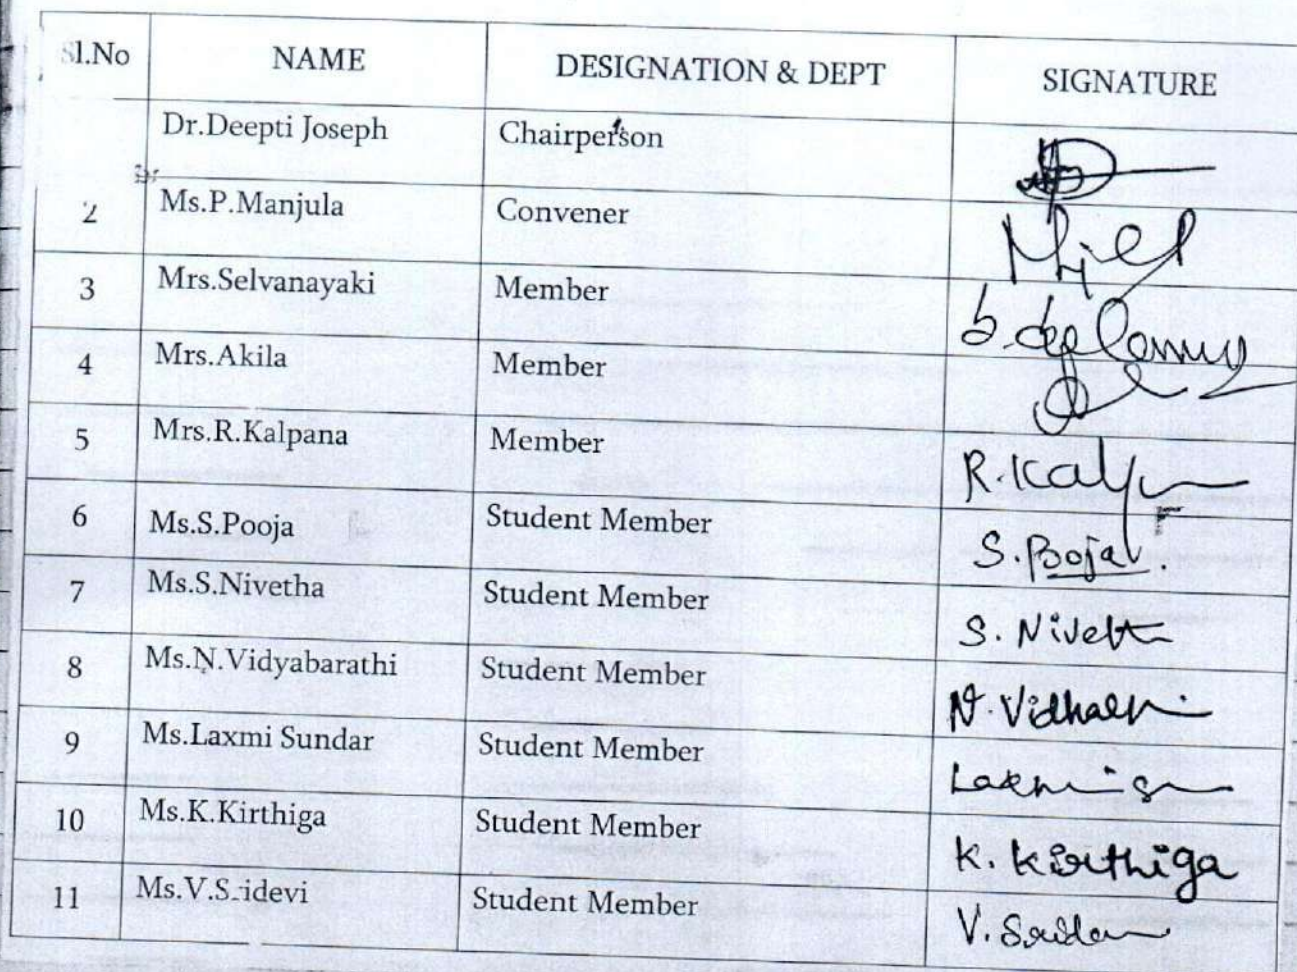 Sl.No NAME DESIGNATION & DEPT SIGNATURE
Dr.Deepti Joseph Chairperson
2 Ms.P.Manjula Convener
3 Mrs.Selvanayaki Member
4 Mrs.Akila Member
5 Mrs.R.Kalpana Member R.Kalp
6 Ms.S.Pooja Student Member S.Pooja.
7 Ms.S.Nivetha Student Member S. Niveth
8 Ms.N.Vidyabarathi Student Member
9 Ms.Laxmi Sundar Student Member
10 Ms.K.Kirthiga Student Member K. Kirthiga
11 Ms.V.S idevi Student Member